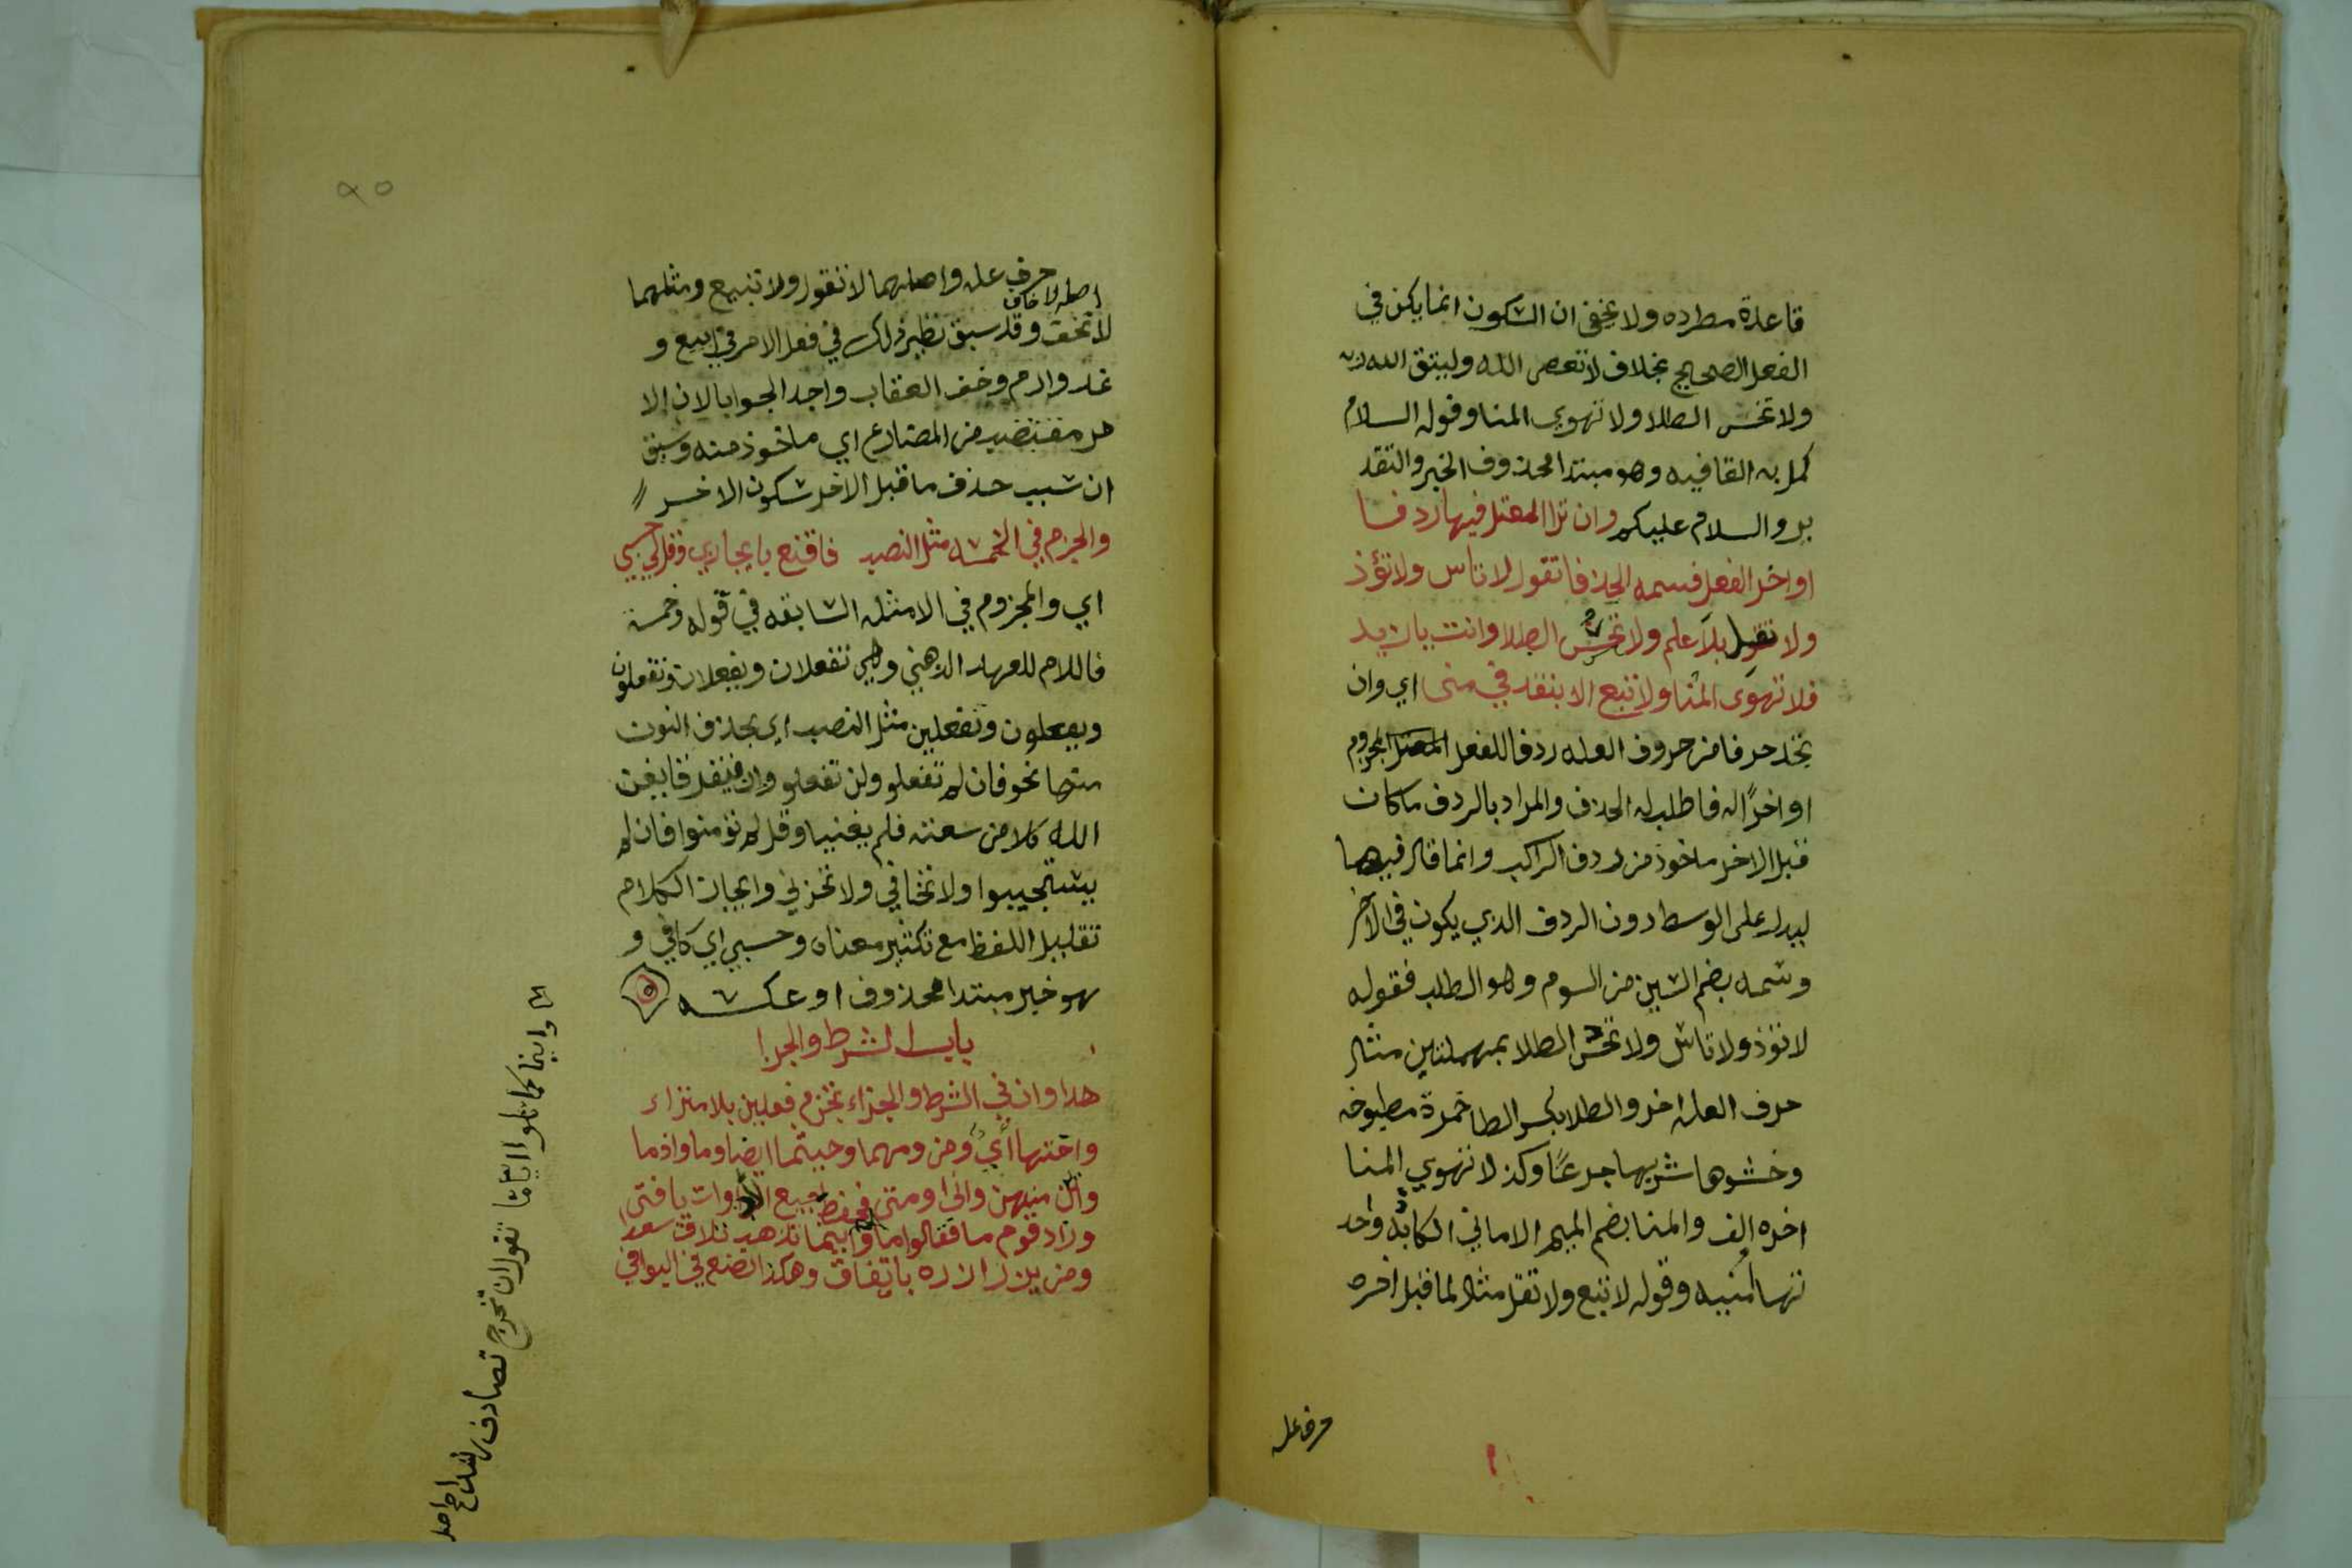 قاعدة مطرده ولا يخفى ان السكون انما يكن في
الفعل الصحيح بخلاف لا تعص الله وليتق الله ربه
ولا تحس الطلا ولا تهوى المنا وقوله السلام
كمل به القافيه وهو مبتدا محذوف الخبر والتقد
ير والسلام عليكم وان ترا المعتل فيها ردفا
او اخر الفعل فسمه الحذفا تقول لا تاس ولا تؤذ
ولا تقل بلا علم ولا تحس الطلا وانت يا زيد
فلا تهوى المنا ولا تبع الا بنقد في منى اي وان
تجد حرفا من حروف العله ردفا للفعل المعتل المجزوم
او اخرًا له فاطلب له الحذف والمراد بالردف ماكان
قبل الاخر ماخوذ من ردف الراكب وانما قال فيها
ليدل على الوسط دون الردف الذي يكون في الآخر
وسمه بضم السين من السوم وهو الطلب فقوله
لا تؤذ ولا تاس ولا تحس الطلا بمهملتين مثال
حرف العله اخر والطلا بكسر الطا خمرة مطبوخه
وحسوها شربها جرعًا وكذا لا تهوي المنا
اخره الف والمنا بضم الميم الاماني الكاذبه واحد
تها اُمنيه وقوله لا تبع ولا تقل مثال لما قبل اخره
حرف عله
حرف عله واصلهما لا تقول ولا تبيع ومثلهما
اصله لا تخاف
لا تخف وقد سبق نظير ذلك في فعل الامر في ابيع و
غد وارم وخف العقاب واجد الجوابا لان الا
مر مقتضب من المضارع اي ماخوذ منه وسبق
ان سبب حذف ماقبل الاخر سكون الاخر
والجزم في الخمسه مثل النصب فاقنع بايجازي وقل لي حسبي
اي والمجزوم في الامثله السابقه في قوله وخمسة
فاللام للعهد الذهني وهي تفعلان ويفعلان وتفعلون
ويفعلون وتفعلين مثل النصب اي بحذف النون
منها نحو فان لم تفعلو ولن تفعلو وان يتفرقا يغن
الله كلا من سعته فلم يغنيا وقل لم تؤمنوا فان لم
يستجيبوا ولا تخافي ولا تحزني وايجاز الكلام
تقليل اللفظ مع تكثير معناه وحسبي اي كافي و
هو خبر مبتدا محذوف او عكسه
باب الشرط والجزا
هذا وان في الشرط والجزاء تجزم فعلين بلا متراء
واختها أي ومن ومهما وحيثما ايضا وما واذما
واين منهن وانى ومتى فحفظ جميع الادوات يا فتى
وزاد قوم ما فقالوا اما واينما تذهب تلاق سعدا
ومن يزر ازره باتفاق وهكذا تصنع في البواقي
واينما كما تلوا ايا ما تقول ان تخرج تصادف رشدا